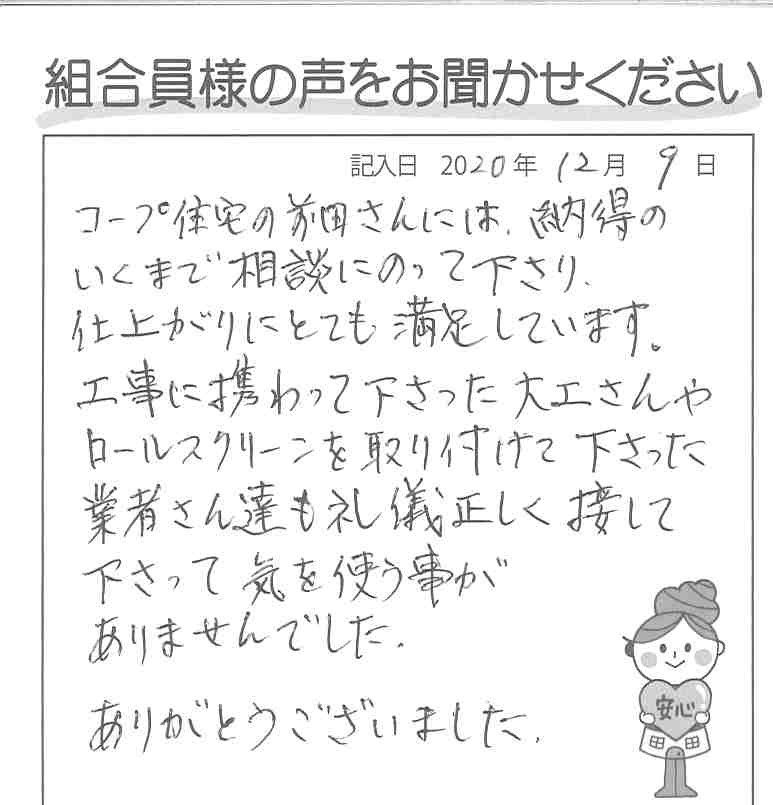 組合員様の声をお聞かせください
記入日 2020年 12月 9日
コープ住宅の前田さんには、納得の
いくまで相談にのって下さり、
仕上がりにとても満足しています。
工事に携わって下さった大工さんや
ロールスクリーンを取り付けて下さった
業者さん達も礼儀正しく接して
下さって気を使う事が
ありませんでした。
ありがとうございました。
安心